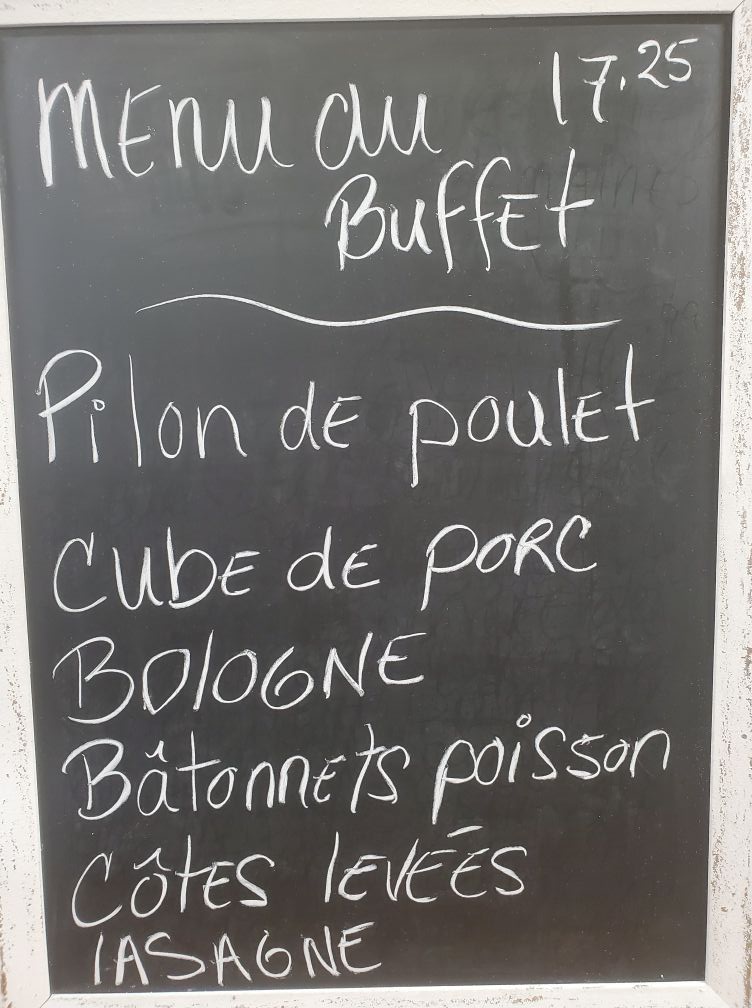 MENU du
17.25
BuffEt
Pilon dE poulEt
CubE dE PORC
BOlOGNE
BâtonnEts poisson
CôtEs lEVÉEs
lASAGNE